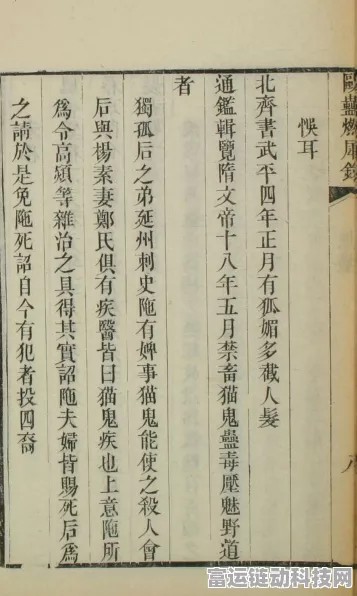 悞耳
北齊書武平四年正月有狐媚多截人髮
通鑑輯覽隋文帝十八年五月禁畜猫鬼蠱毒壓魅野道
者
獨孤后之弟延州刺史陁有婢事猫鬼能使之殺人會
后與楊素妻鄭氏俱有疾醫皆曰猫鬼疾也上意陁所
爲令高熲等雜治之具得其實詔陁夫婦皆賜死后爲
之請於是免陁死詔自今有犯者投四裔
八
富运链动科技网